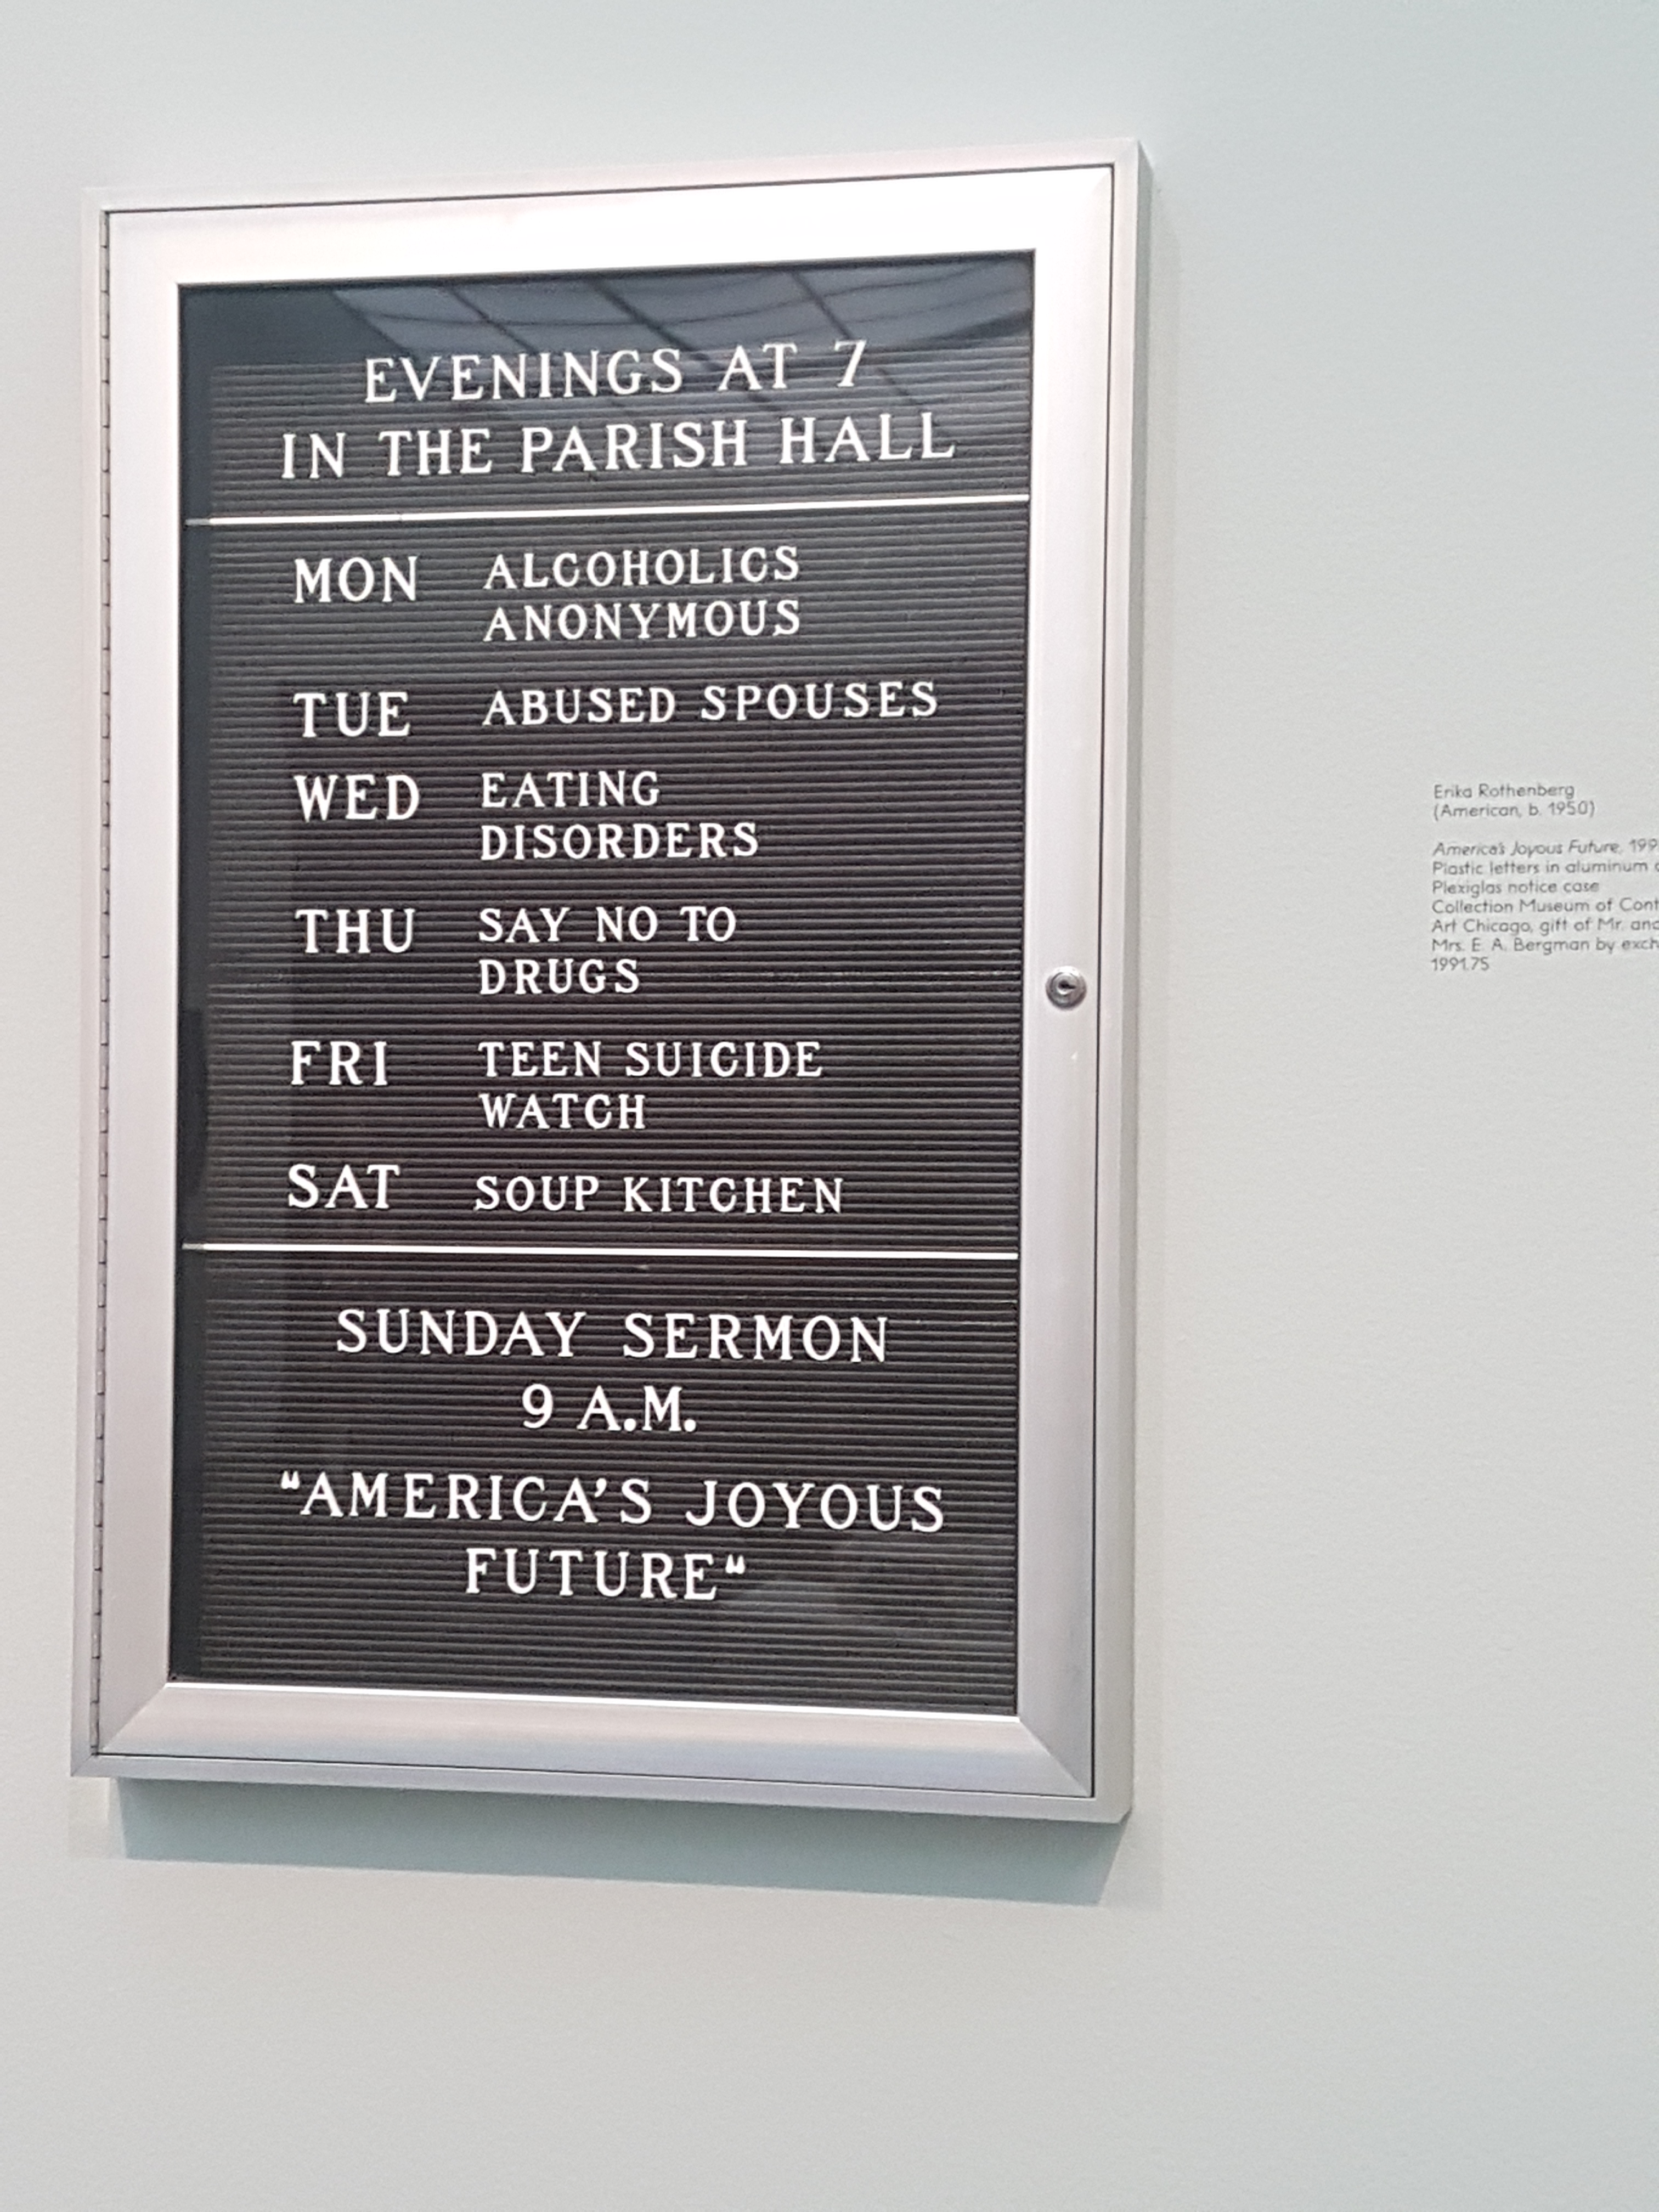 EVENINGS AT 7
IN THE PARISH HALL
MON ALCOHOLICS
ANONYMOUS
TUE ABUSED SPOUSES
WED EATING
DISORDERS
THU SAY NO TO
DRUGS
FRI TEEN SUICIDE
WATCH
SAT SOUP KITCHEN
SUNDAY SERMON
9 A.M.
“AMERICA’S JOYOUS
FUTURE“
Erika Rothenberg
(American, b. 1950)
America's Joyous Future,
Plastic letters in aluminum
Plexiglas notice case
Collection Museum of
Art Chicago, gift of Mr. and
Mrs. E. A. Bergman by
1991.75